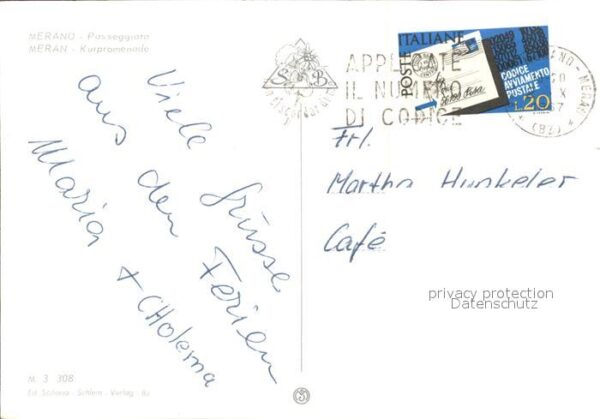 MERANO - Passeggiata
MERAN - Kurpromenade
Viele Grüsse
aus den Ferien
Maria +
M. 3 308
APPLICATE
IL NUMERO
DI CODICE
POSTE ITALIANE
CODICE
AVVIAMENTO
POSTALE
L.20
MERAN
Frl.
Martha Hunkeler
Café
privacy protection
Datenschutz